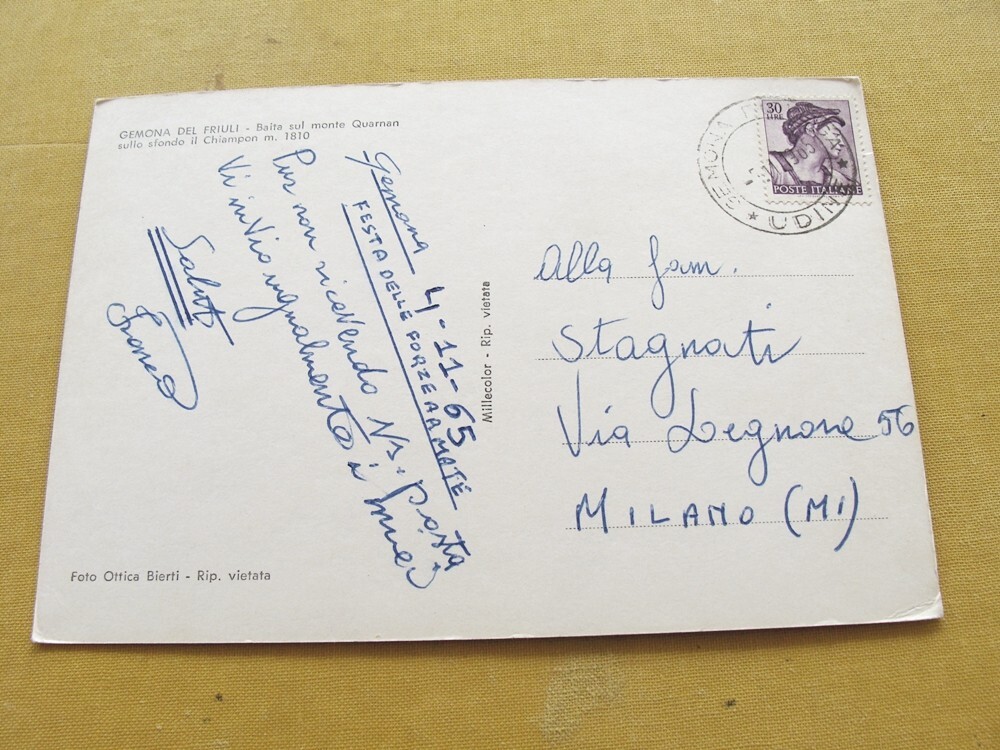 GEMONA DEL FRIULI - Baita sul monte Quarnan
sullo sfondo il Chiampon m. 1810
Gemona 4-11-65
FESTA DELLE FORZE ARMATE
Pur non ricevendo Vs. Posta
Vi invio ugualmente i miei
Saluti
Franco
Foto Ottica Bierti - Rip. vietata
Millecolor - Rip. vietata
30
LIRE
POSTE ITALIANE
GEMONA
UDINE
Alla fam.
Stagnati
Via Legnone 56
MILANO (MI)